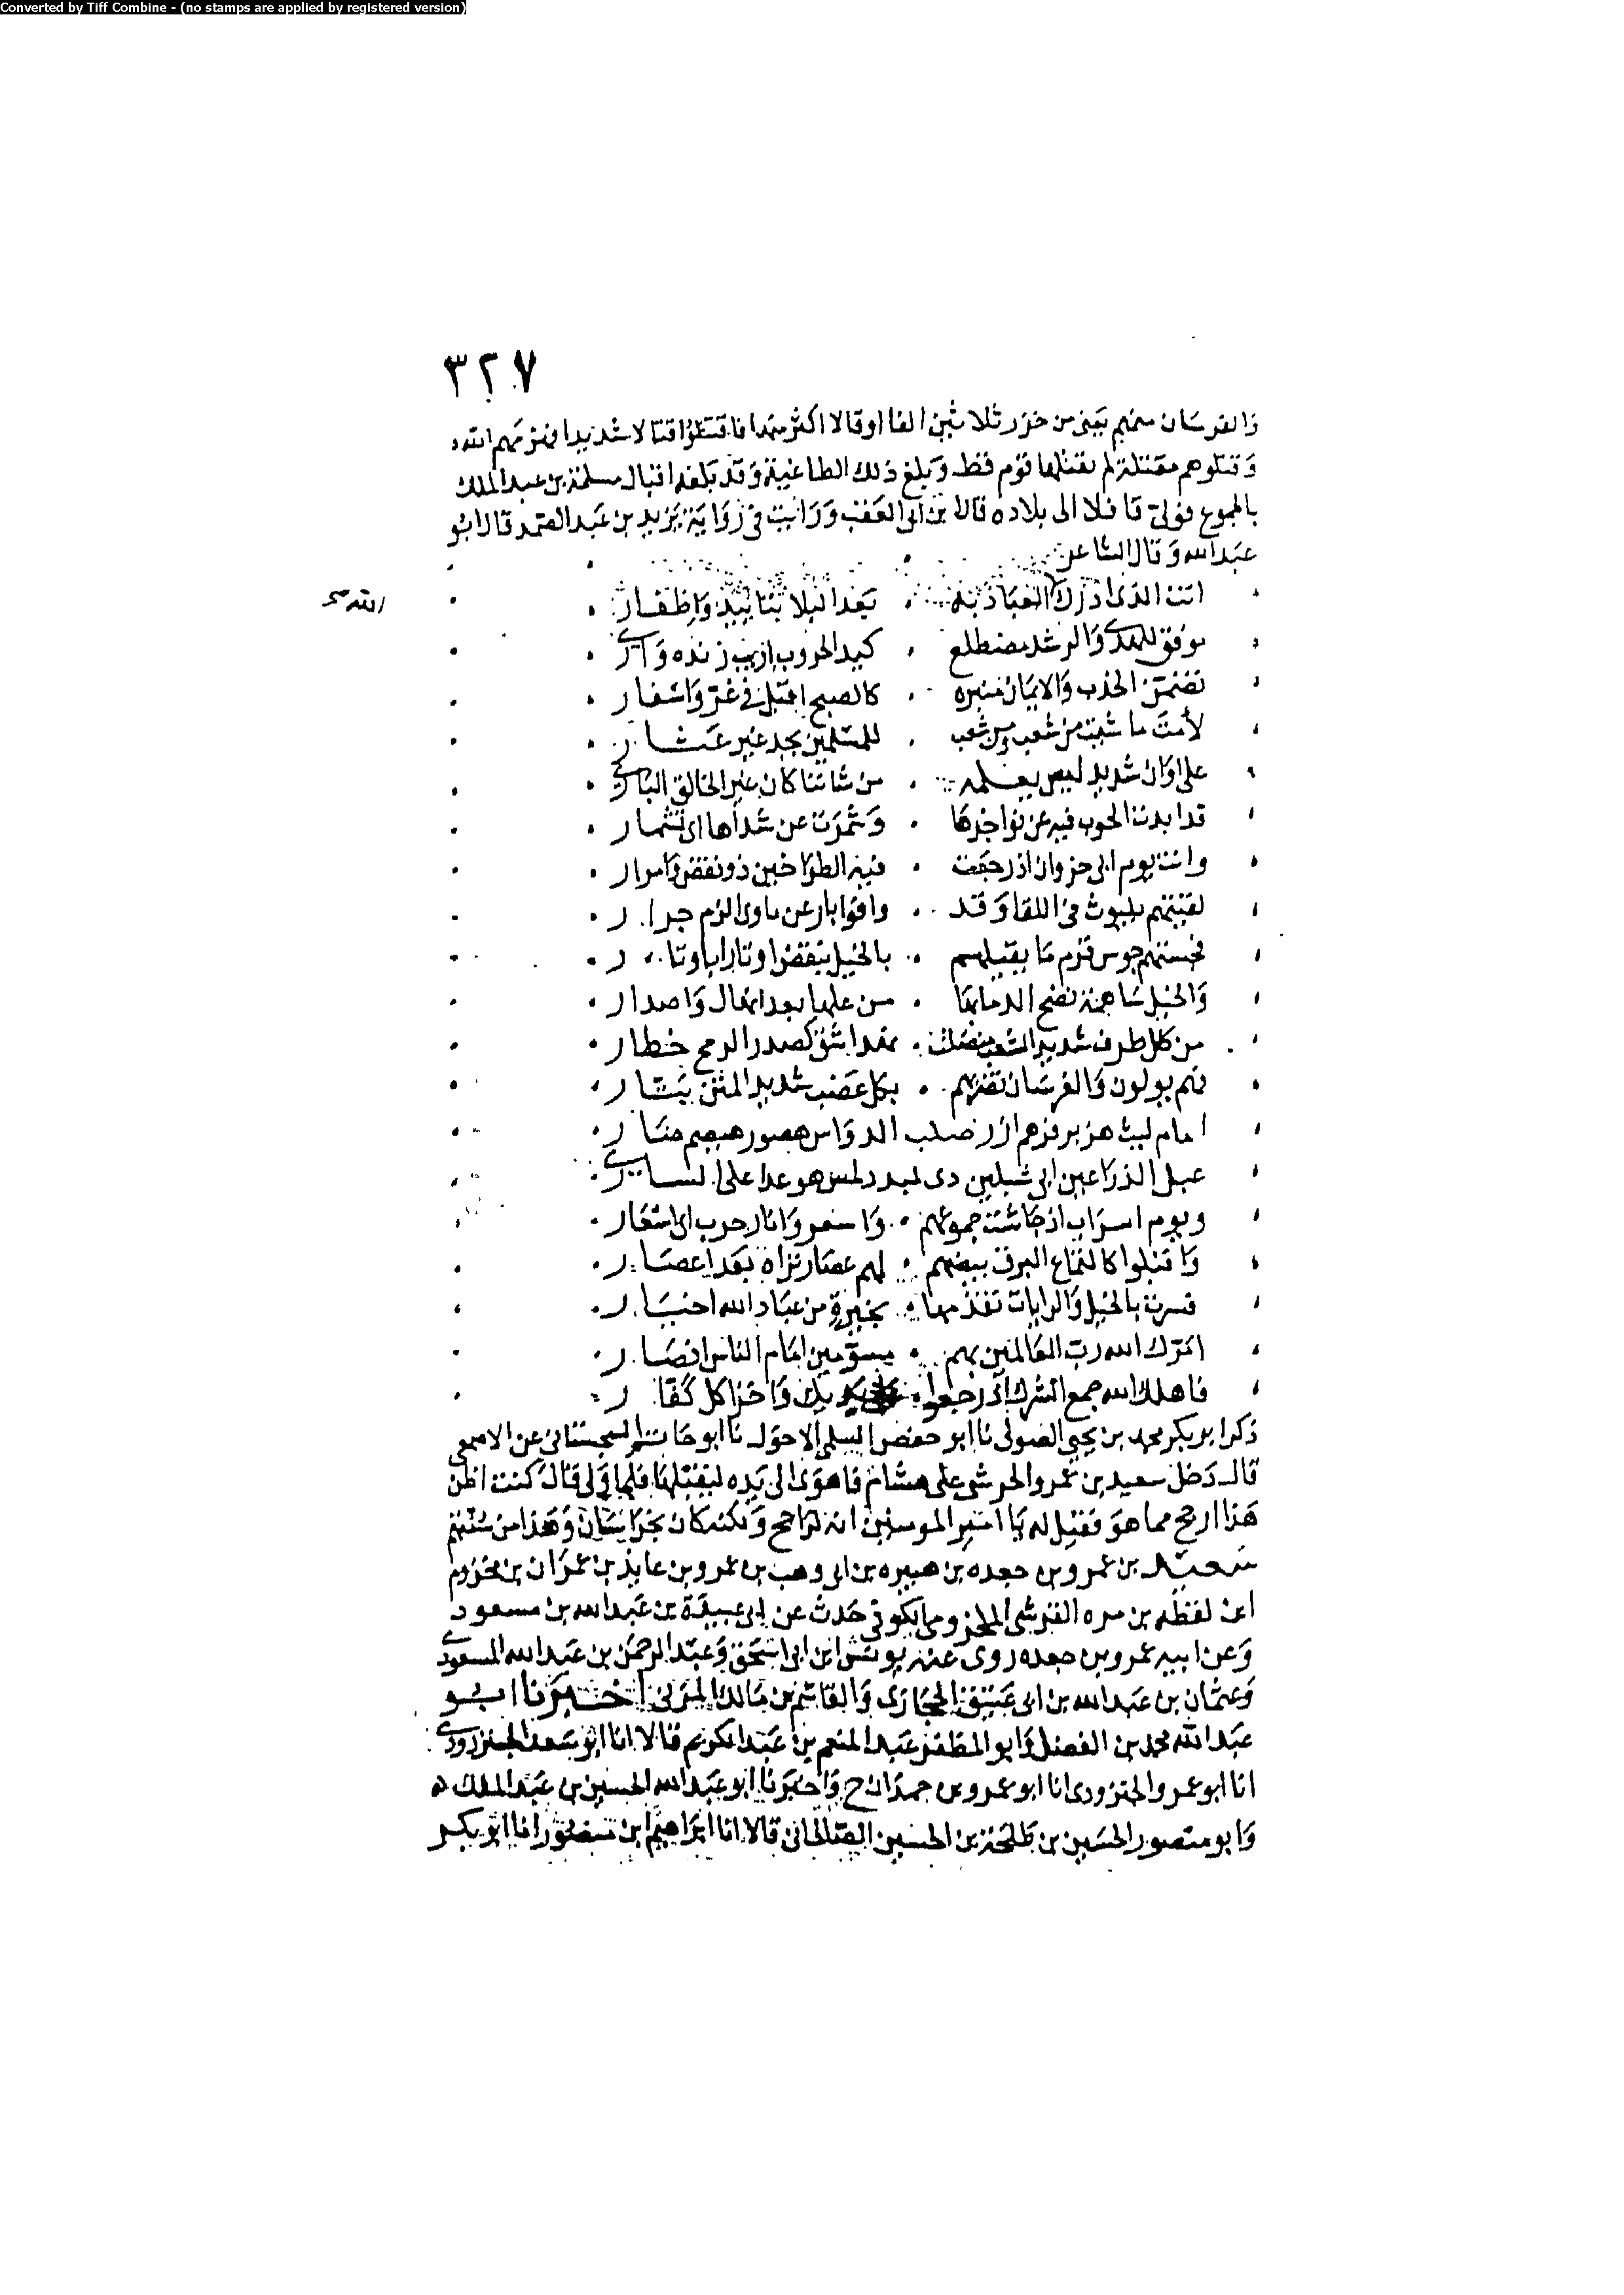 Converted by Tiff Combine - (no stamps are applied by registered version)
٣٢٧
والفرسان منهم يعني من خزر ثلاثين الفا او قالا اكثر منها فاقتتلوا قتالا شديدا فهزمهم الله
وقتلوهم مقتلة لم يقتلها قوم قط وبلغ ذلك الطاغية وقد بلغه اقبال مسلمة بن عبد الملك
بالجموع فولى قافلا الى بلاده قال ابن ابي العقب ورايت في رواية يزيد بن عبد الصمد قال ابو
عبد الله وقال الشاعر
انت الذي ادرك العباد به بعد البلا بتاييد واظفار
الله
موفق للهدى والرشد مضطلع كيد الحروب اريب زنده واري
تضمن الحزب والايمان منبره كالصبح اقبل في غر واسفار
لأمت ما شعبت من شعب ومن شعب للمسلمين بجد غير عثار
على اوان شديد ليس يعلمه من شاننا كان غير الخالق الباري
قد ابدت الحرب فيه عن نواجذها وشمرت عن شداها اي تشمار
وانت يوم ابي حزوان اذ رجفت فيه الطواحين ذو نقض وامرار
لقيتهم بليوث في اللقا وقد وافوا بارعن ماوى الرزم جرار
فجستهم جوس قرم ما يقيلهم بالخيل تنقض اوتارا باوتار
والخيل ساهمة نضح الدما بها من علها بعد انهال واصدار
من كل طرف شديد الشعب كصدر الرمح خطار
فهم يولون والفرسان تقتلهم بكل عضب شديد المتن بتار
امام ليث هزبر صلب الدواس هصور هيصم ضار
عبل الذراعين ابي شبلين ذي لبد على الساري
ويوم اسراب اذ جاشت جموعهم واستعروا نار حرب اي اسعار
واقبلوا كالتماع البرق بيضهم لهم عصار تراه بعد اعصار
فسرت بالخيل والرايات تقدمها بخيرة من عباد الله اخيار
امدك الله رب العالمين بهم مسومين امام الناس انصار
فاهلك الله جمع الشرك اذ رجعوا على يديك واخزا كل كفار
ذكر ابو بكر محمد بن يحيى الصولي نا ابو حفص السلمي الاحول نا ابو حاتم السجستاني عن الاصمعي
قال دخل سعيد بن عمرو الحرشي على هشام فاهوى الى يده ليقبلها فلما ولى قال كنت اظن
هذا ارجح مما هو فقيل له يا امير المومنين انه لراجح ولكنه كان بخراسان وهذا من سنتهم
سعيد بن عمرو بن جعده بن هبيره بن ابي وهب بن عمرو بن عايذ بن عمران بن مخزوم
ابن يقظه بن مره القرشي المخزومي الكوفي حدث عن ابي عبيدة بن عبد الله بن مسعود
وعن ابيه عمرو بن جعده روى عنه يونس ابن ابي اسحق وعبد الرحمن بن عبد الله المسعودي
وعثمان بن عبد الله بن ابي عتيق الحجازي والقاسم بن مالك المزني اخبرنا ابو
عبد الله محمد بن الفضل وابو المظفر عبد المنعم بن عبد الكريم قالا انا ابو سعد الجنزرودي
انا ابو عمرو بن حمدان ح واخبرنا ابو عبد الله الحسين بن عبد الملك
وابو منصور الحسين بن طلحة بن الحسين الصالحاني قالا انا ابراهيم ابن منصور انا ابو بكر